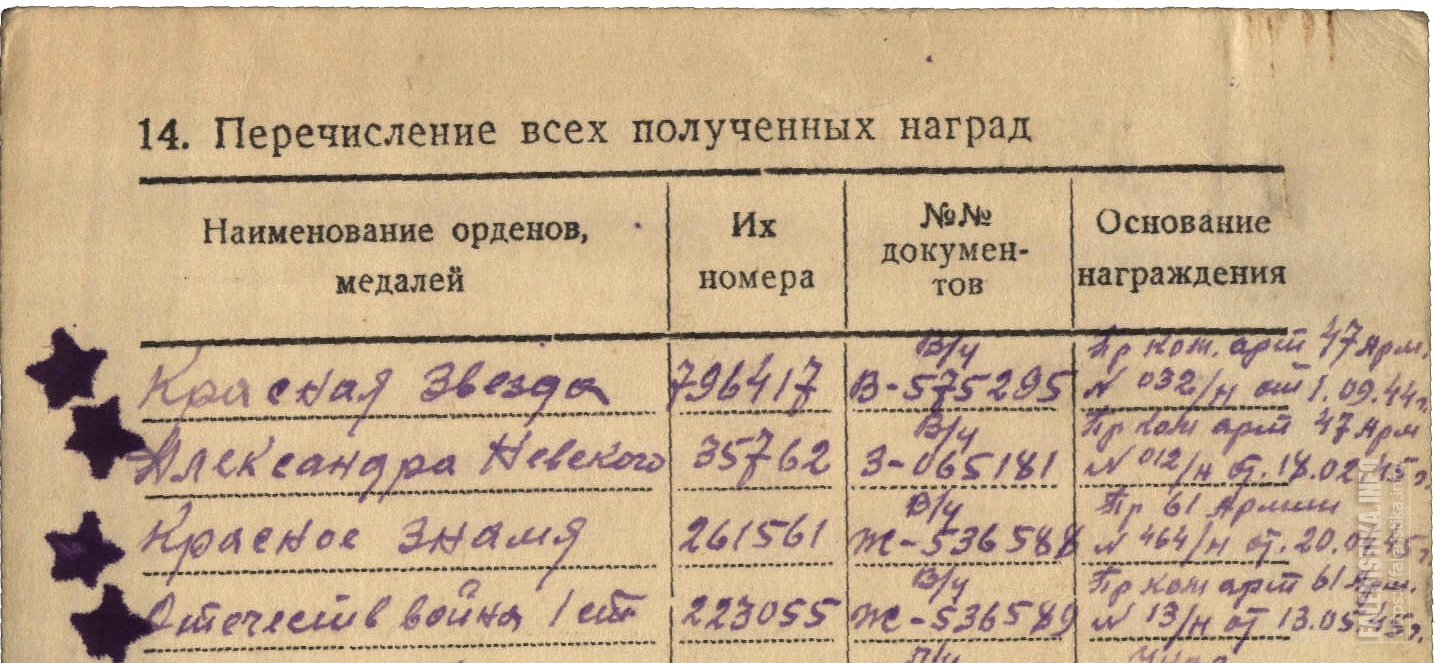 14. Перечисление всех полученных наград
Наименование орденов,
медалей
Их
номера
№№
докумен-
тов
Основание
награждения
Красная Звезда
796417
В/у
В-575295
Пр ком. арт 47 Арм.
N 032/н от 1.09.44г.
Александра Невского
35762
В/у
З-065181
Пр ком арт 47 Арм
N 012/н от. 18.02.45г.
Красное Знамя
261561
В/у
Ж-536588
Пр 61 Армии
N 464/н от. 20.
Отечеств война 1 ст
223055
В/у
Ж-536589
Пр ком арт 61 Арм.
N 13/н от 13.05.45г.
FALERISTIKA.INFO
https://faleristika.info